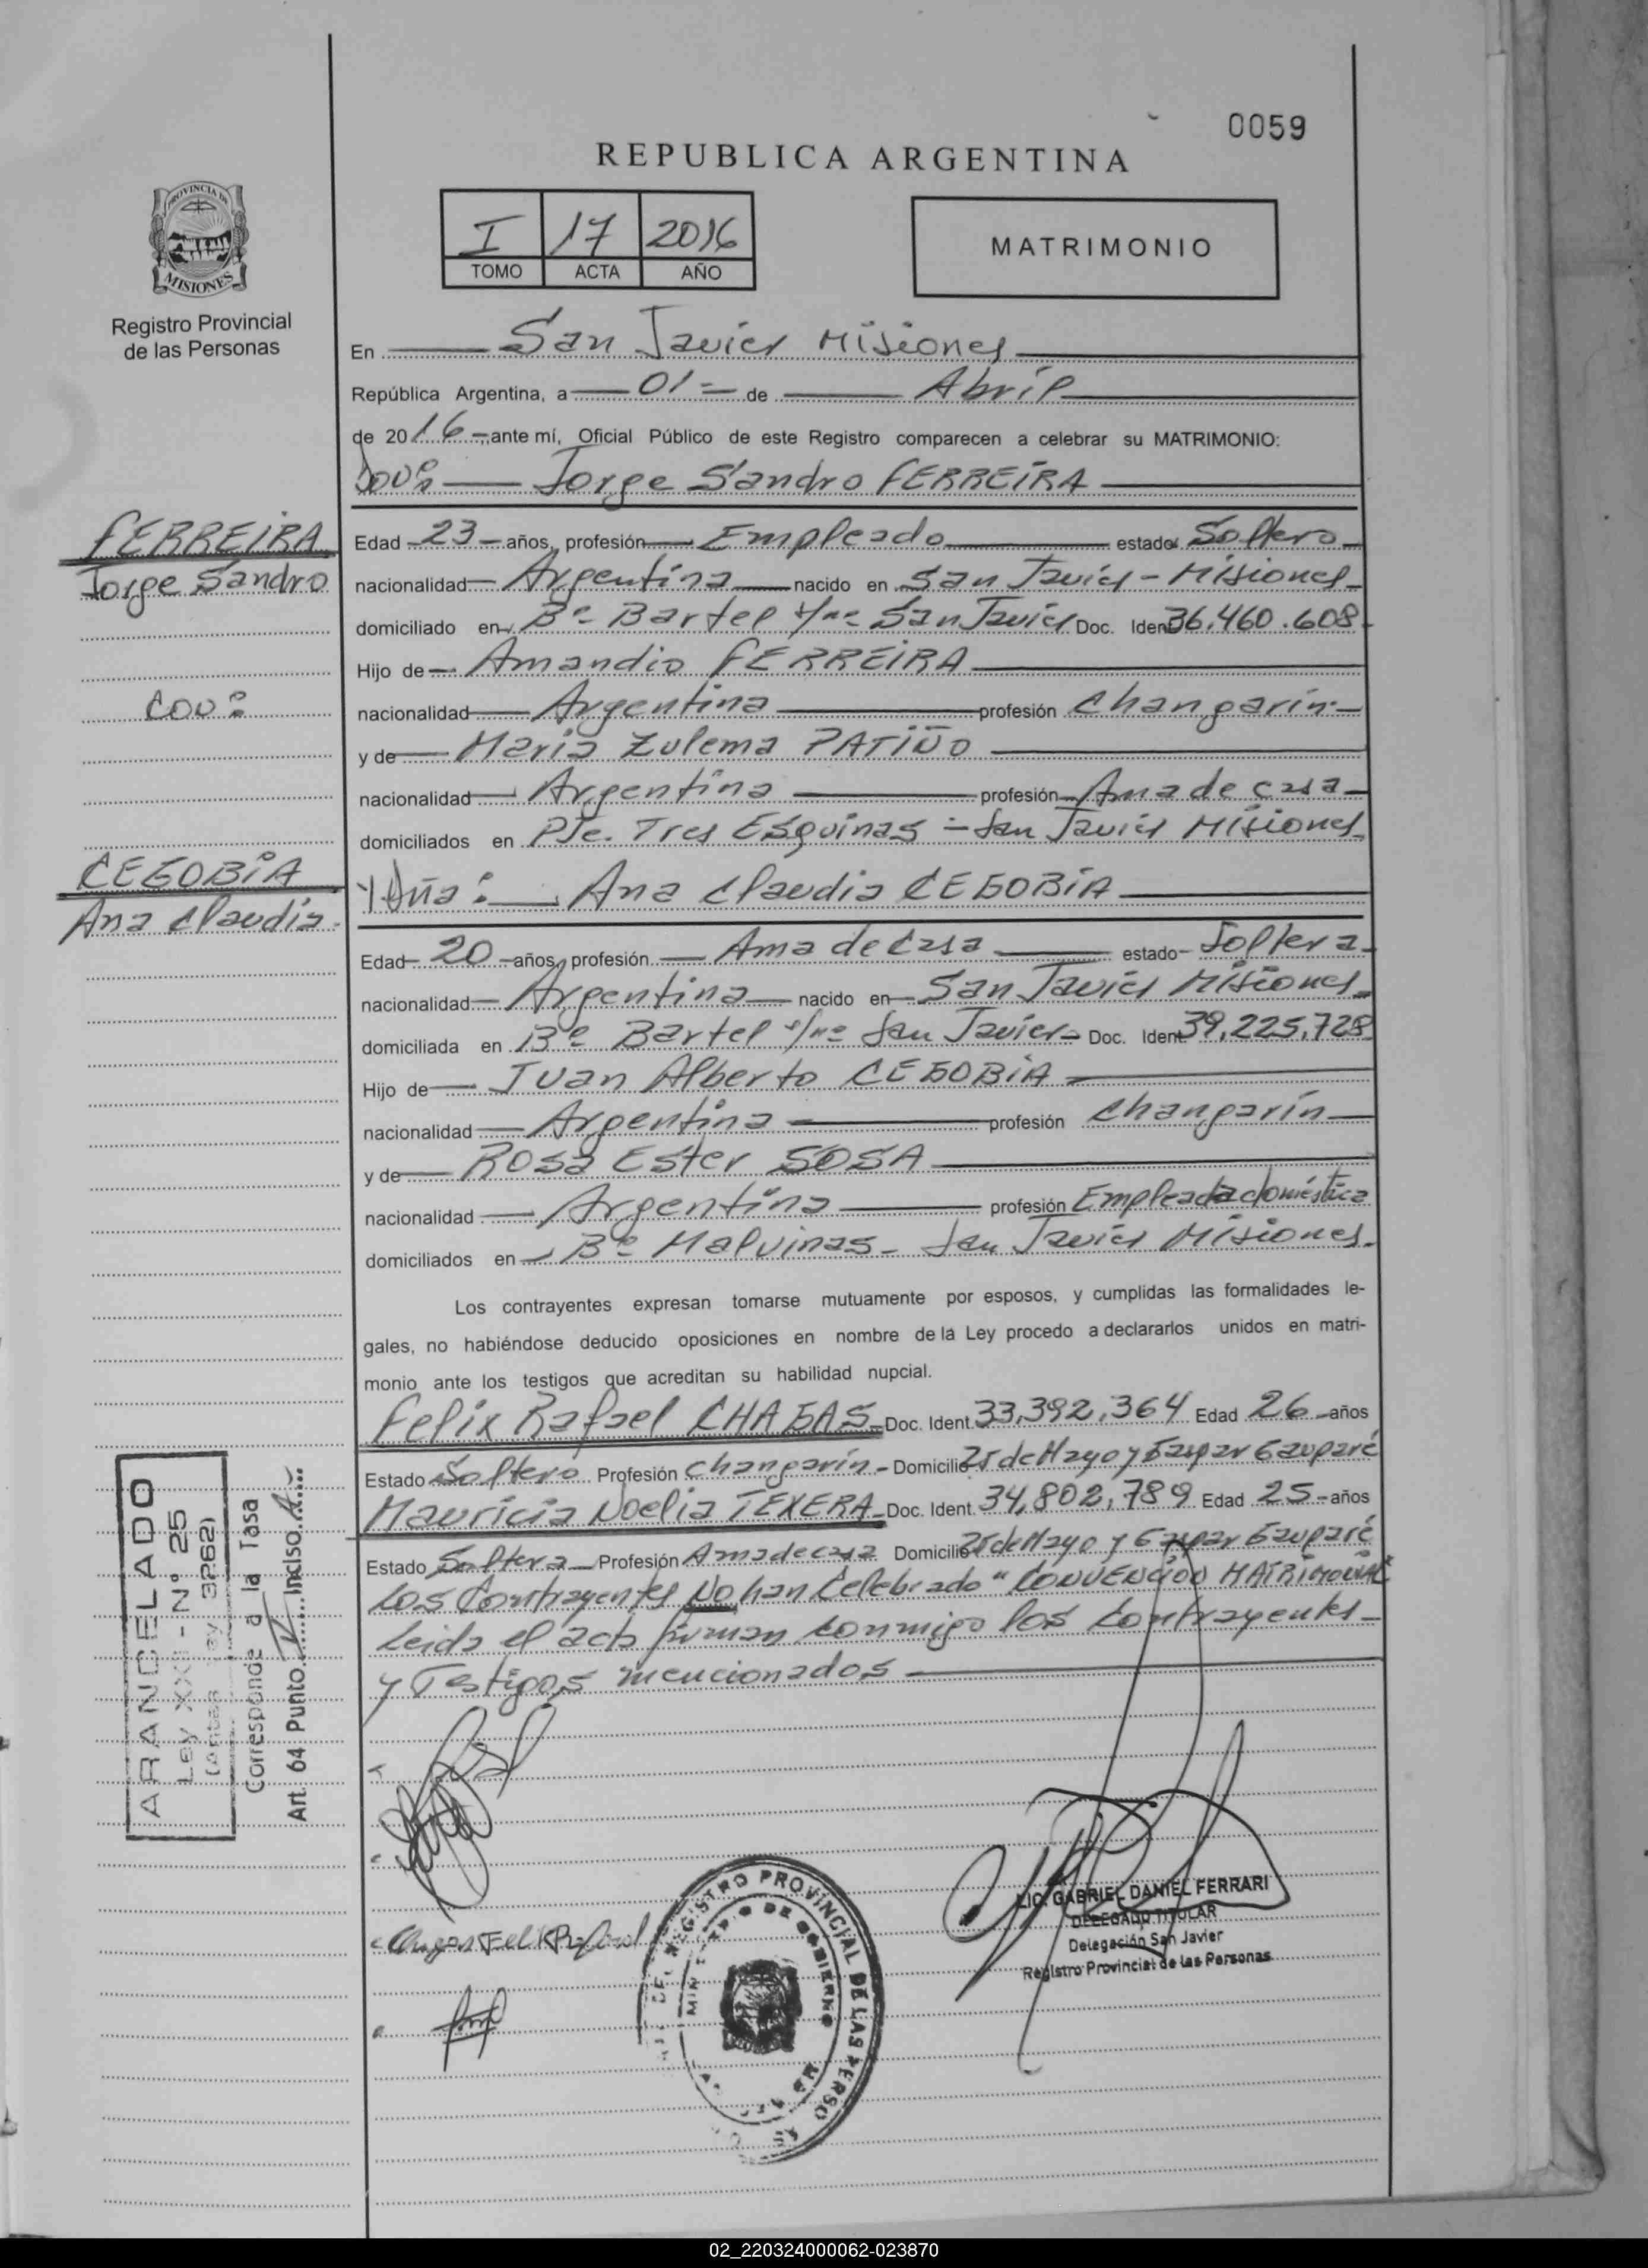 0059
REPUBLICA ARGENTINA
I 17 2016
TOMO ACTA AÑO
MATRIMONIO
PROVINCIA DE
MISIONES
Registro Provincial
de las Personas
En San Javier Misiones
República Argentina, a 01 = de Abril
de 2016 - ante mí, Oficial Público de este Registro comparecen a celebrar su MATRIMONIO:
Jorge Sandro FERREIRA
FERREIRA
Jorge Sandro
con:
CEGOBIA
Ana Claudia
Edad 23 años, profesión Empleado estado Soltero
nacionalidad Argentina nacido en San Javier - Misiones
domiciliado en Bº Bartel s/nº San Javier Doc. Ident 36.460.608
Hijo de Amandio FERREIRA
nacionalidad Argentina profesión Changarín
y de Maria Zulema PATIÑO
nacionalidad Argentina profesión Ama de casa
domiciliados en Pje. Tres Esquinas - San Javier Misiones
Y Dña: Ana Claudia CEGOBIA
Edad 20 años, profesión Ama de casa estado Soltera
nacionalidad Argentina nacido en San Javier Misiones
domiciliada en Bº Bartel s/nº San Javier Doc. Ident 39,225,728
Hijo de Juan Alberto CEGOBIA
nacionalidad Argentina profesión Changarín
y de Rosa Ester SOSA
nacionalidad Argentina profesión Empleada doméstica
domiciliados en Bº Malvinas - San Javier Misiones.
Los contrayentes expresan tomarse mutuamente por esposos, y cumplidas las formalidades le-
gales, no habiéndose deducido oposiciones en nombre de la Ley procedo a declararlos unidos en matri-
monio ante los testigos que acreditan su habilidad nupcial.
Felix Rafael CHAGAS Doc. Ident. 33,392,364 Edad 26 años
Estado Soltero Profesión Changarín - Domicilio 25 de Mayo y Gaspar Gauparé
Mauricia Noelia TEXERA Doc. Ident. 34,802,789 Edad 25 años
Estado Soltera Profesión Ama de casa Domicilio 25 de Mayo y Gaspar Gauparé
Los Contrayentes No han Celebrado "CONVENCION MATRIMONIAL"
Leida el acta firman conmigo los contrayentes
y Testigos mencionados
ARANCELADO
Ley XXII - Nº 25
(Antes Ley 3262)
Corresponde a la Tasa
Art. 64 Punto Inciso A
Chagas Felix Rafael
REGISTRO PROVINCIAL DE LAS PERSO
LIC. GABRIEL DANIEL FERRARI
DELEGADO TITULAR
Delegación San Javier
Registro Provincial de las Personas
02_220324000062-023870